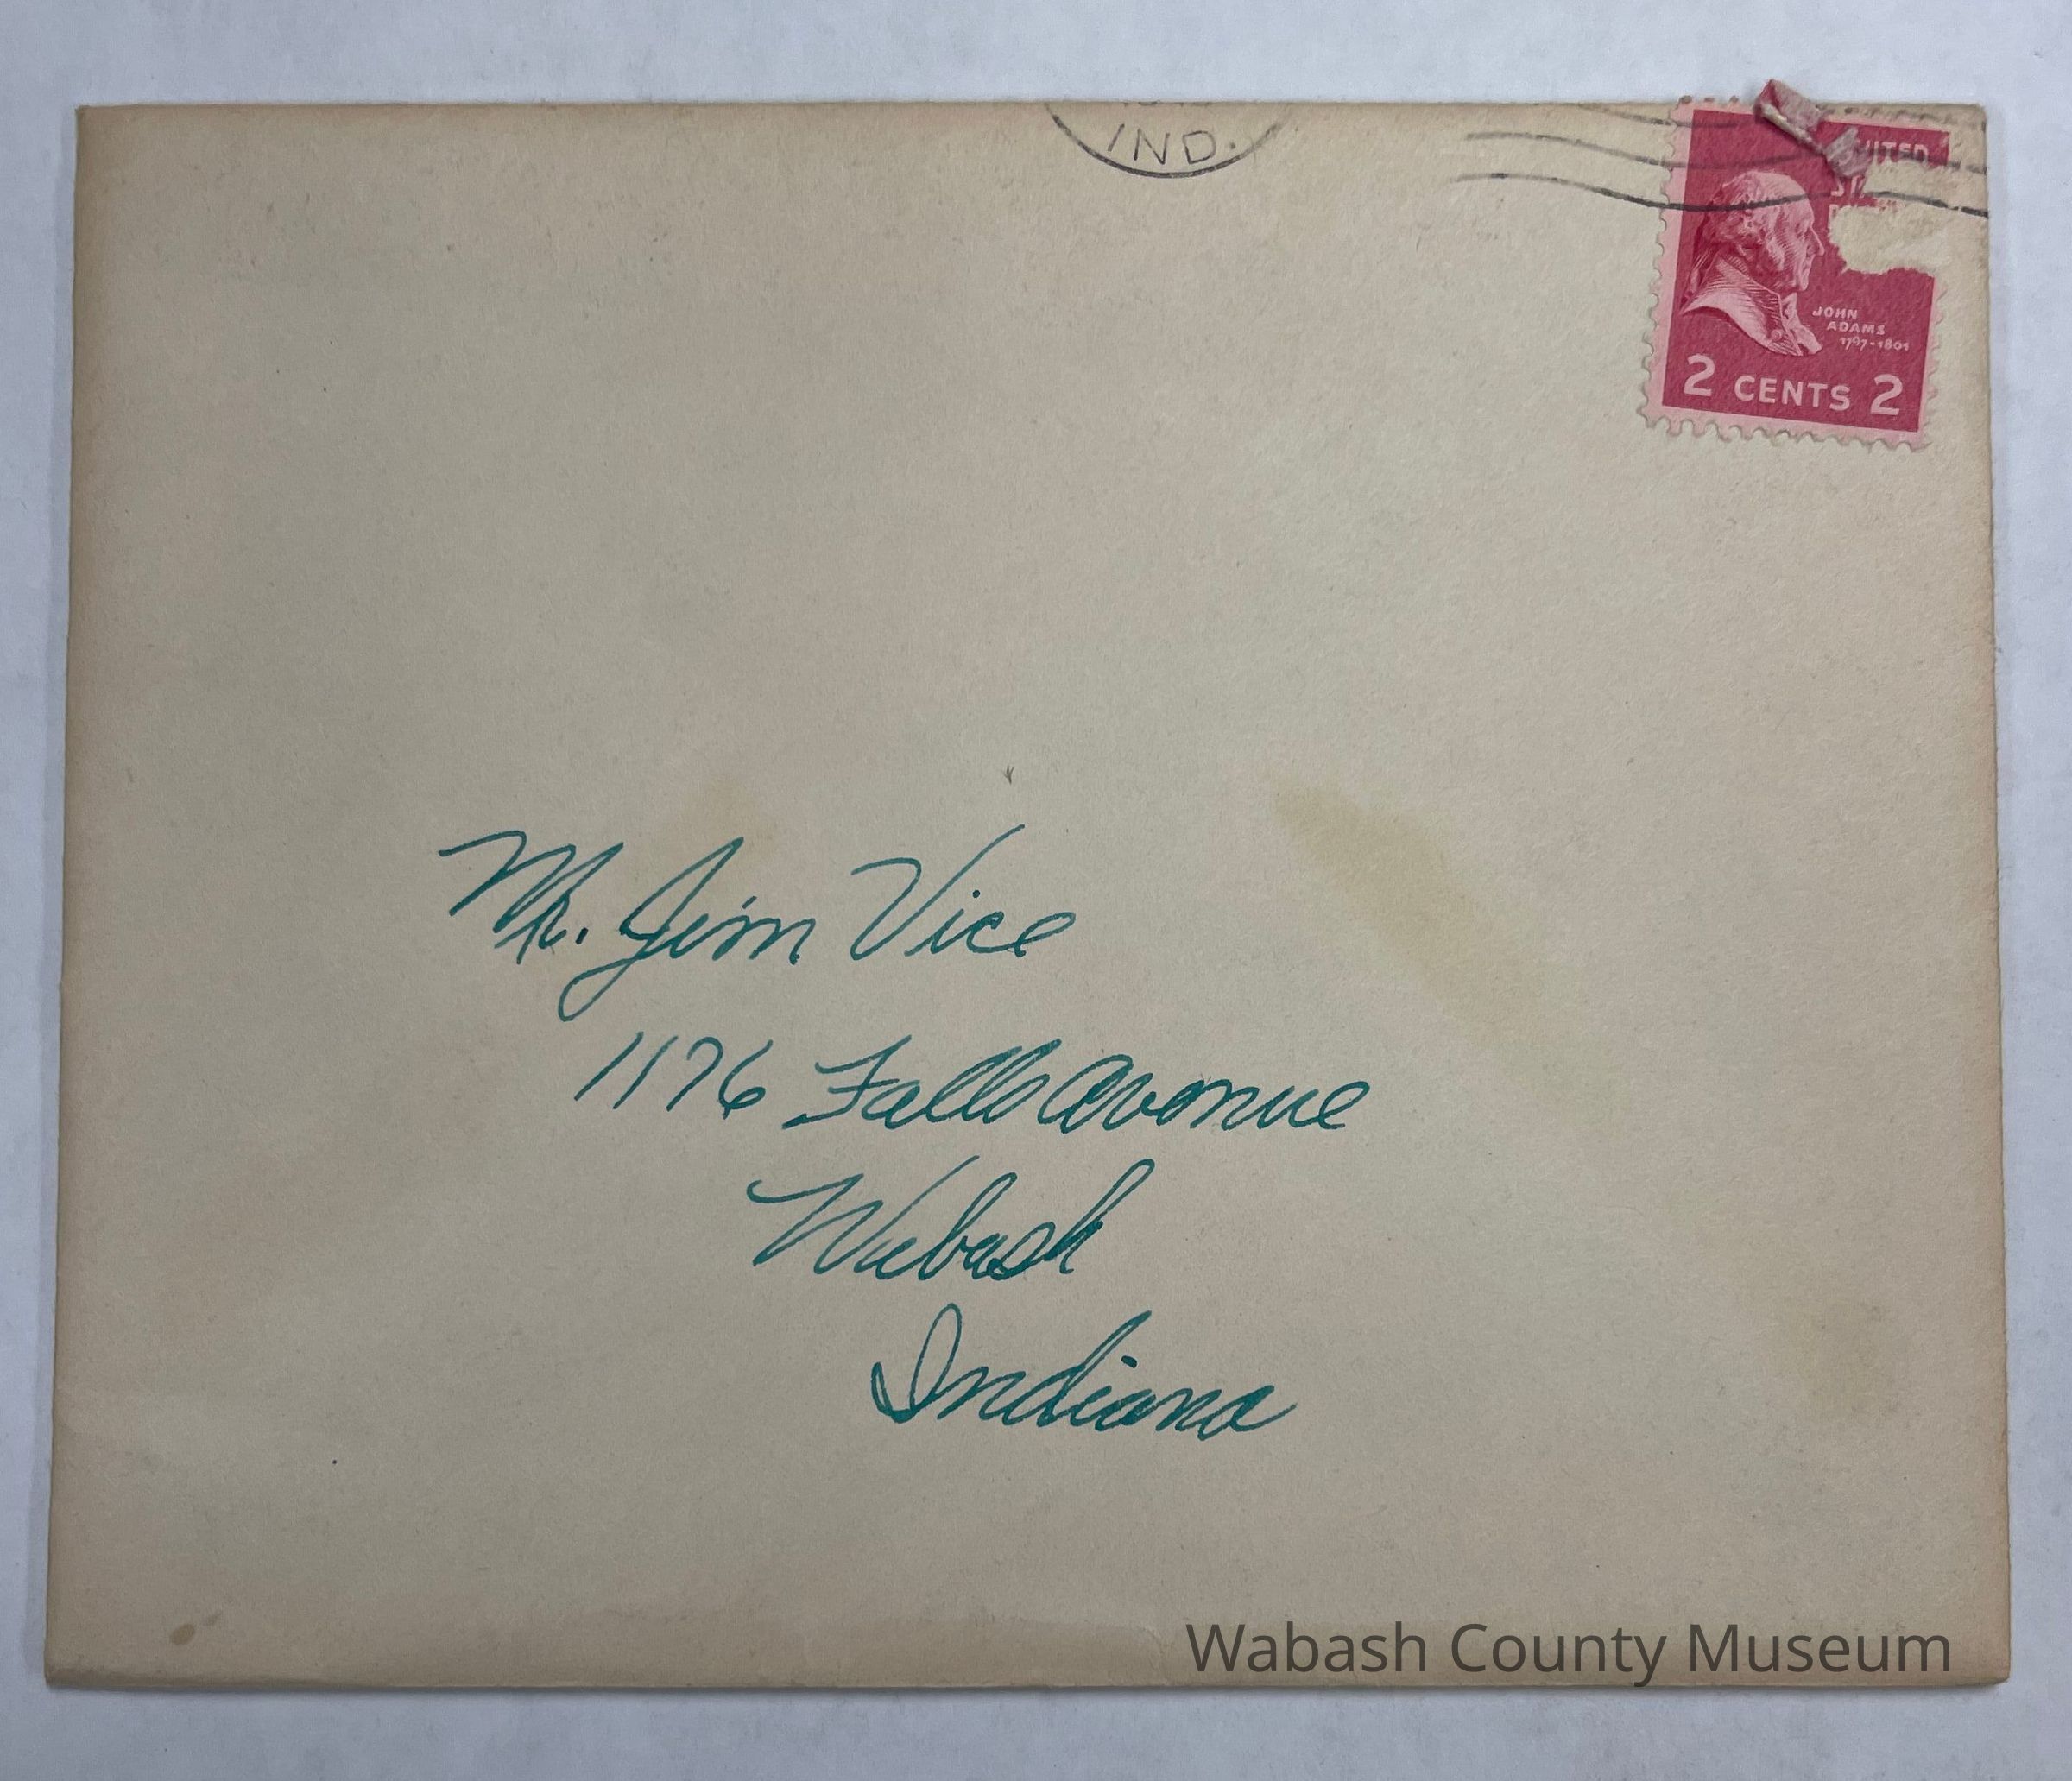 IND.
UNITED
JOHN
ADAMS
1797-1801
2 CENTS 2
Mr. Jim Vice
1176 Falls Avenue
Wabash
Indiana
Wabash County Museum